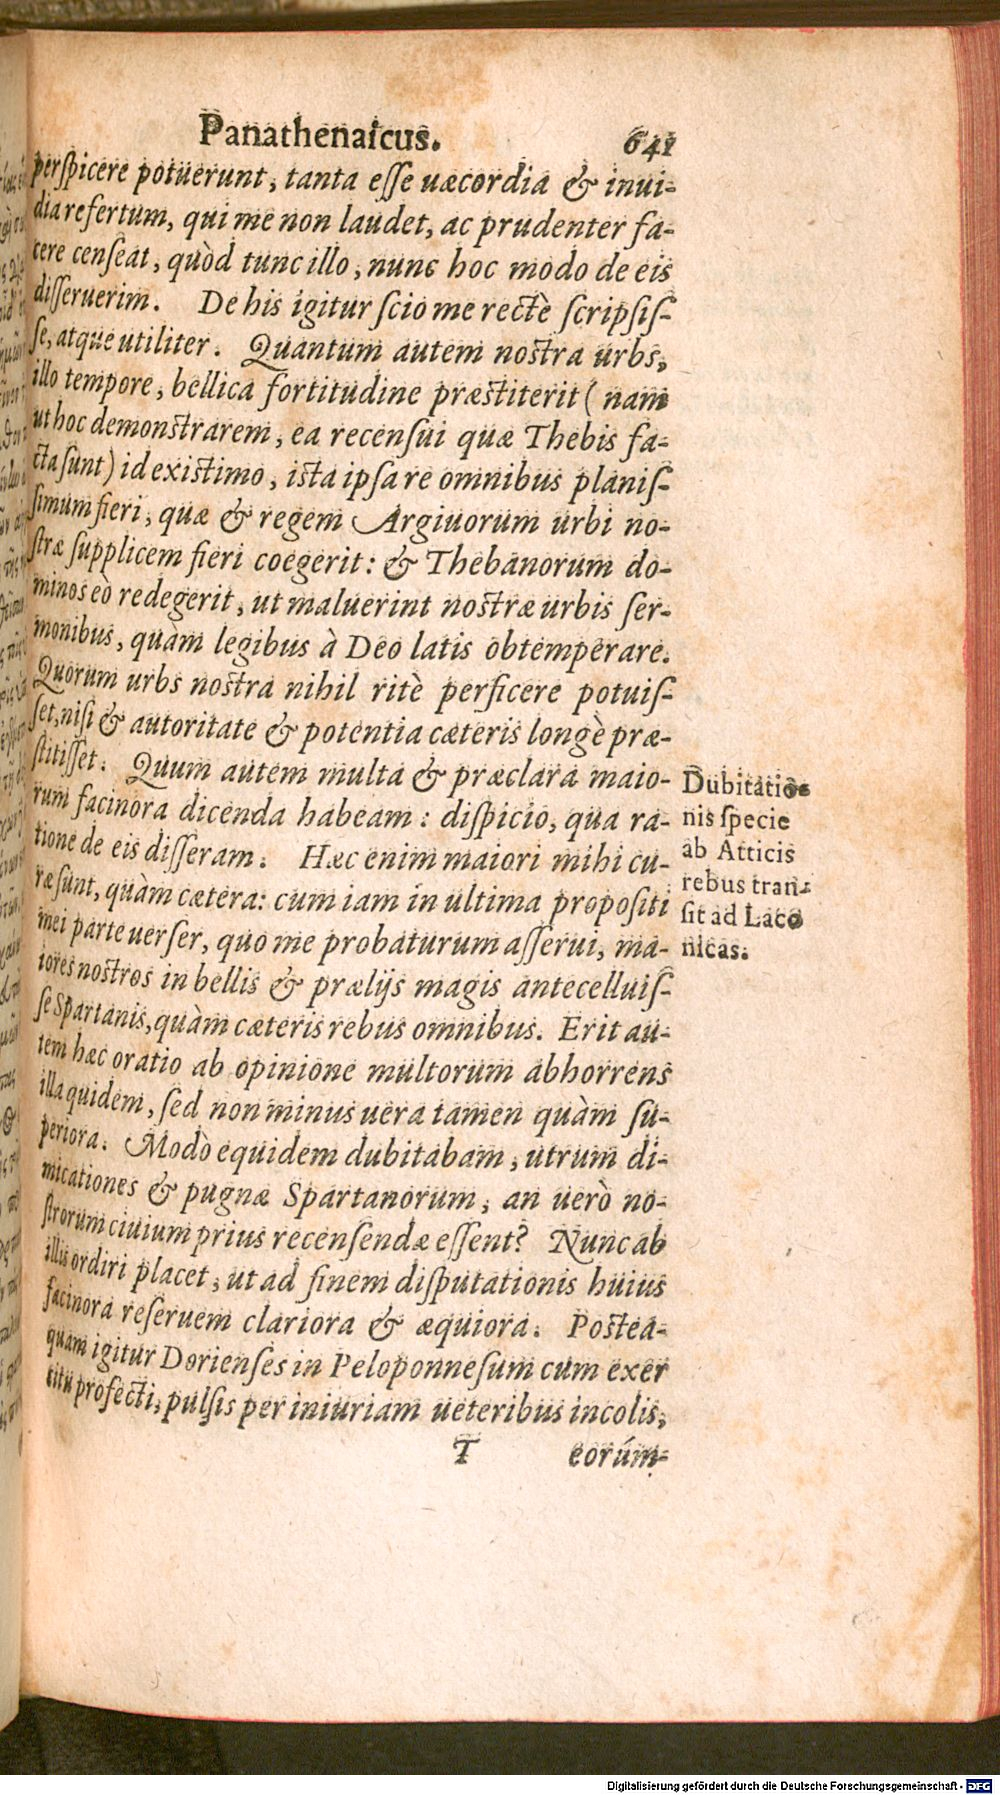 Panathenaicus. 641
perspicere potuerunt, tanta esse uæcordia & inui-
dia refertum, qui me non laudet, ac prudenter fa-
cere censeat, quòd tunc illo, nunc hoc modo de eis
disseruerim. De his igitur scio me rectè scripsis-
se, atque utiliter. Quantum autem nostra urbs,
illo tempore, bellica fortitudine præstiterit ( nam
ut hoc demonstrarem, ea recensui quæ Thebis fa-
cta sunt ) id existimo, ista ipsa re omnibus planis-
simum fieri, quæ & regem Argiuorum urbi no-
stræ supplicem fieri coegerit: & Thebanorum do-
minos eò redegerit, ut maluerint nostræ urbis ser-
monibus, quàm legibus à Deo latis obtemperare.
Quorum urbs nostra nihil ritè perficere potuis-
set, nisi & autoritate & potentia cæteris longè præ-
stitisset. Quum autem multa & præclara maio-
rum facinora dicenda habeam: dispicio, qua ra-
tione de eis disseram. Hæc enim maiori mihi cu-
ræ sunt, quàm cætera: cum iam in ultima propositi
mei parte uerser, quo me probaturum asserui, ma-
iores nostros in bellis & prælijs magis antecelluis-
se Spartanis, quàm cæteris rebus omnibus. Erit au-
tem hæc oratio ab opinione multorum abhorrens
illa quidem, sed non minus uera tamen quàm su-
periora. Modò equidem dubitabam, utrum di-
micationes & pugnæ Spartanorum, an uerò no-
strorum ciuium prius recensendæ essent? Nunc ab
illis ordiri placet, ut ad finem disputationis huius
facinora reseruem clariora & æquiora. Postea-
quam igitur Dorienses in Peloponnesum cum exer
citu profecti, pulsis per iniuriam ueteribus incolis,
T eorúm-
Dubitatio-
nis specie
ab Atticis
rebus tran-
sit ad Laco
nicas.
Digitalisierung gefördert durch die Deutsche Forschungsgemeinschaft - DFG